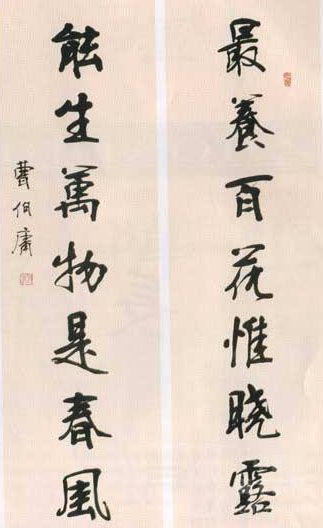 最養百花惟曉露
能生萬物是春風
曹伯庸